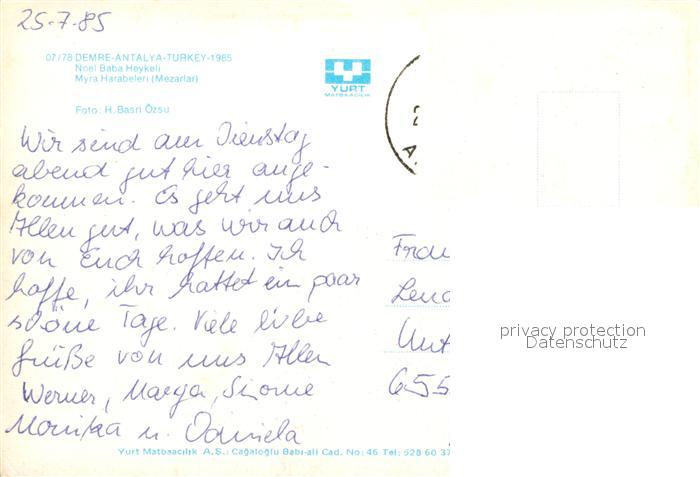 25-7-85
07/78 DEMRE-ANTALYA-TURKEY-1985
Noel Baba Heykeli
Myra Harabeleri (Mezarlar)
YURT
MATBAACILIK
Foto: H. Basri Özsu
Wir sind am Dienstag
abend gut hier ange-
kommen. Es geht uns
Allen gut, was wir auch
von Euch hoffen. Ich
hoffe, ihr hattet ein paar
schöne Tage. Viele liebe
Grüße von uns Allen
Werner, Marga, Simone
Monika u. Daniela
Frau
Lena
Unt
655
privacy protection
Datenschutz
Yurt Matbaacılık A.Ş.: Cağaloğlu Babı-ali Cad. No: 46 Tel: 528 60 37